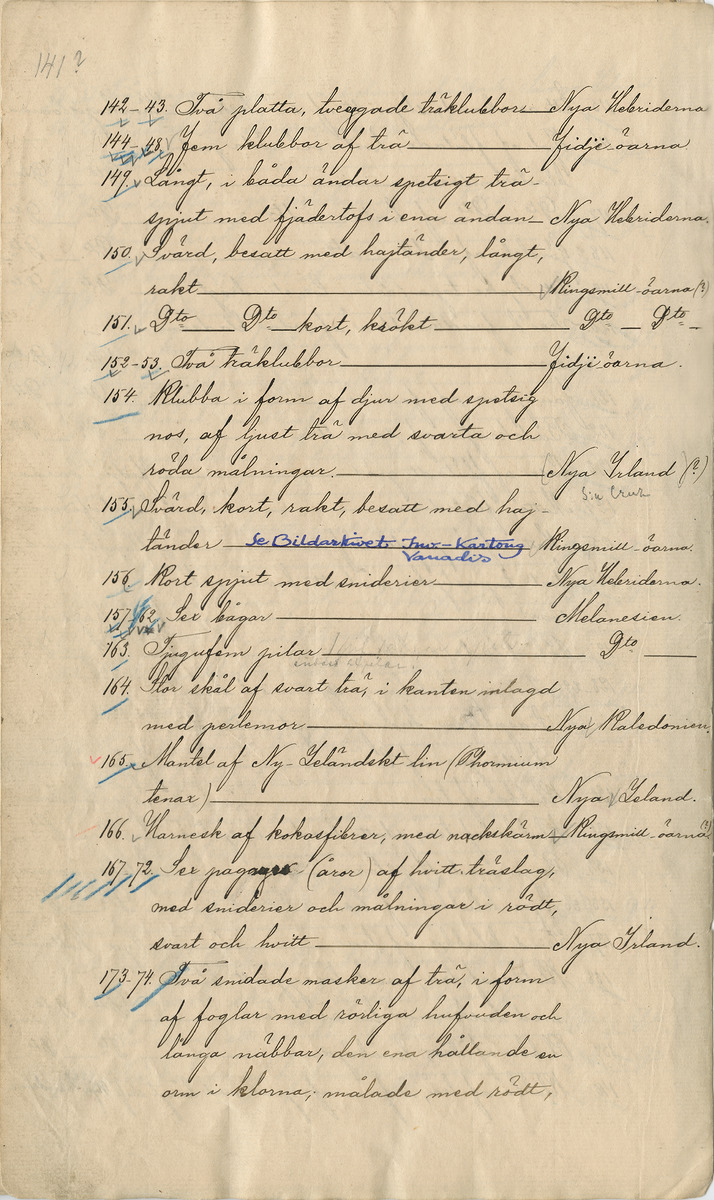 141?
142-43. Två platta, tveeggade träklubbor Nya Hebriderna
144-48. Fem klubbor af trä Fidji-öarna
149. Långt, i båda ändar spetsigt trä-
spjut med fjädertofs i ena ändan Nya Hebriderna.
150. Svärd, besatt med hajtänder, långt,
rakt Kingsmill-öarna (?)
151. Dto Dto kort, krökt Dto Dto
152-53. Två träklubbor Fidji-öarna.
154. Klubba i form af djur med spetsig
nos, af ljust trä med svarta och
röda målningar. (Nya Irland) (?)
S:a Cruz
155. Svärd, kort, rakt, besatt med haj-
tänder Se Bildarkivet Inv.-Kartong Kingsmill-öarna.
Vanadis
156. Kort spjut med sniderier Nya Hebriderna.
157-62. Sex bågar Melanesien.
163. Tjugufem pilar Dto
164. Stor skål af svart trä, i kanten inlagd
med perlemor Nya Kaledonien.
165. Mantel af Ny-Zeländskt lin (Phormium
tenax) Nya Zeland.
166. Harnesk af kokosfibrer, med nackskärm Kingsmill-öarna (?)
167-72. Sex pagayer (åror) af hvitt träslag,
med sniderier och målningar i rödt,
svart och hvitt Nya Irland.
173-74. Två snidade masker af trä, i form
af foglar med rörliga hufvuden och
långa näbbar, den ena hållande en
orm i klorna; målade med rödt,